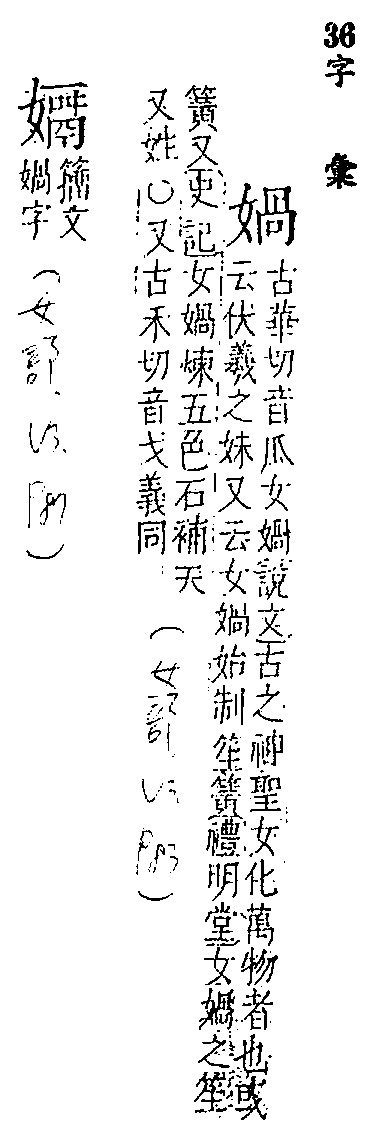 36
字彙
媧
古華切音瓜女媧說文古之神聖女化萬物者也或
云伏羲之妹又云女媧始制笙簧禮明堂女媧之笙
簧又史記女媧煉五色石補天
又姓○又古禾切音戈義同
(女部.
籀文
媧字
(女部.